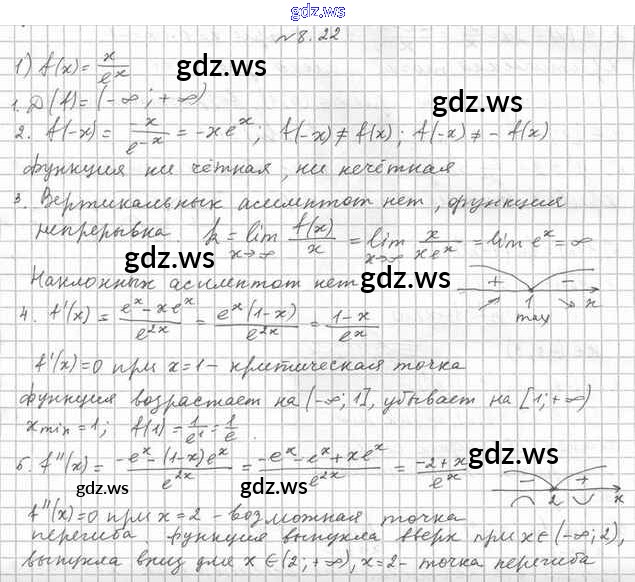 gdz.ws
№8.22
1) f(x) = x/e^x gdz.ws gdz.ws
1. D(f) = (-∞; +∞)
2. f(-x) = -x/e^-x = -xe^x; f(-x) ≠ f(x); f(-x) ≠ -f(x)
функция ни чётная, ни нечётная
3. Вертикальных асимптот нет, функция
непрерывна k = lim x→∞ f(x)/x = lim x→∞ x/xe^x = lim e^x = ∞
gdz.ws gdz.ws
Наклонных асимптот нет
+ - 1 max x
4. f'(x) = e^x - xe^x/e^2x = e^x(1-x)/e^2x = 1-x/e^x
f'(x) = 0 при x = 1 - критическая точка
функция возрастает на (-∞; 1], убывает на [1; +∞)
x min = 1; f(1) = 1/e^1 = 1/e.
5. f''(x) = -e^x - (1-x)e^x/e^2x = -e^x - e^x + xe^x/e^2x = -2+x/e^x
gdz.ws gdz.ws gdz.ws
- + 2 x
f''(x) = 0 при x = 2 - возможная точка
перегиба. Функция выпукла вверх при x∈(-∞; 2),
выпукла вниз для x∈(2; +∞), x = 2 - точка перегиба